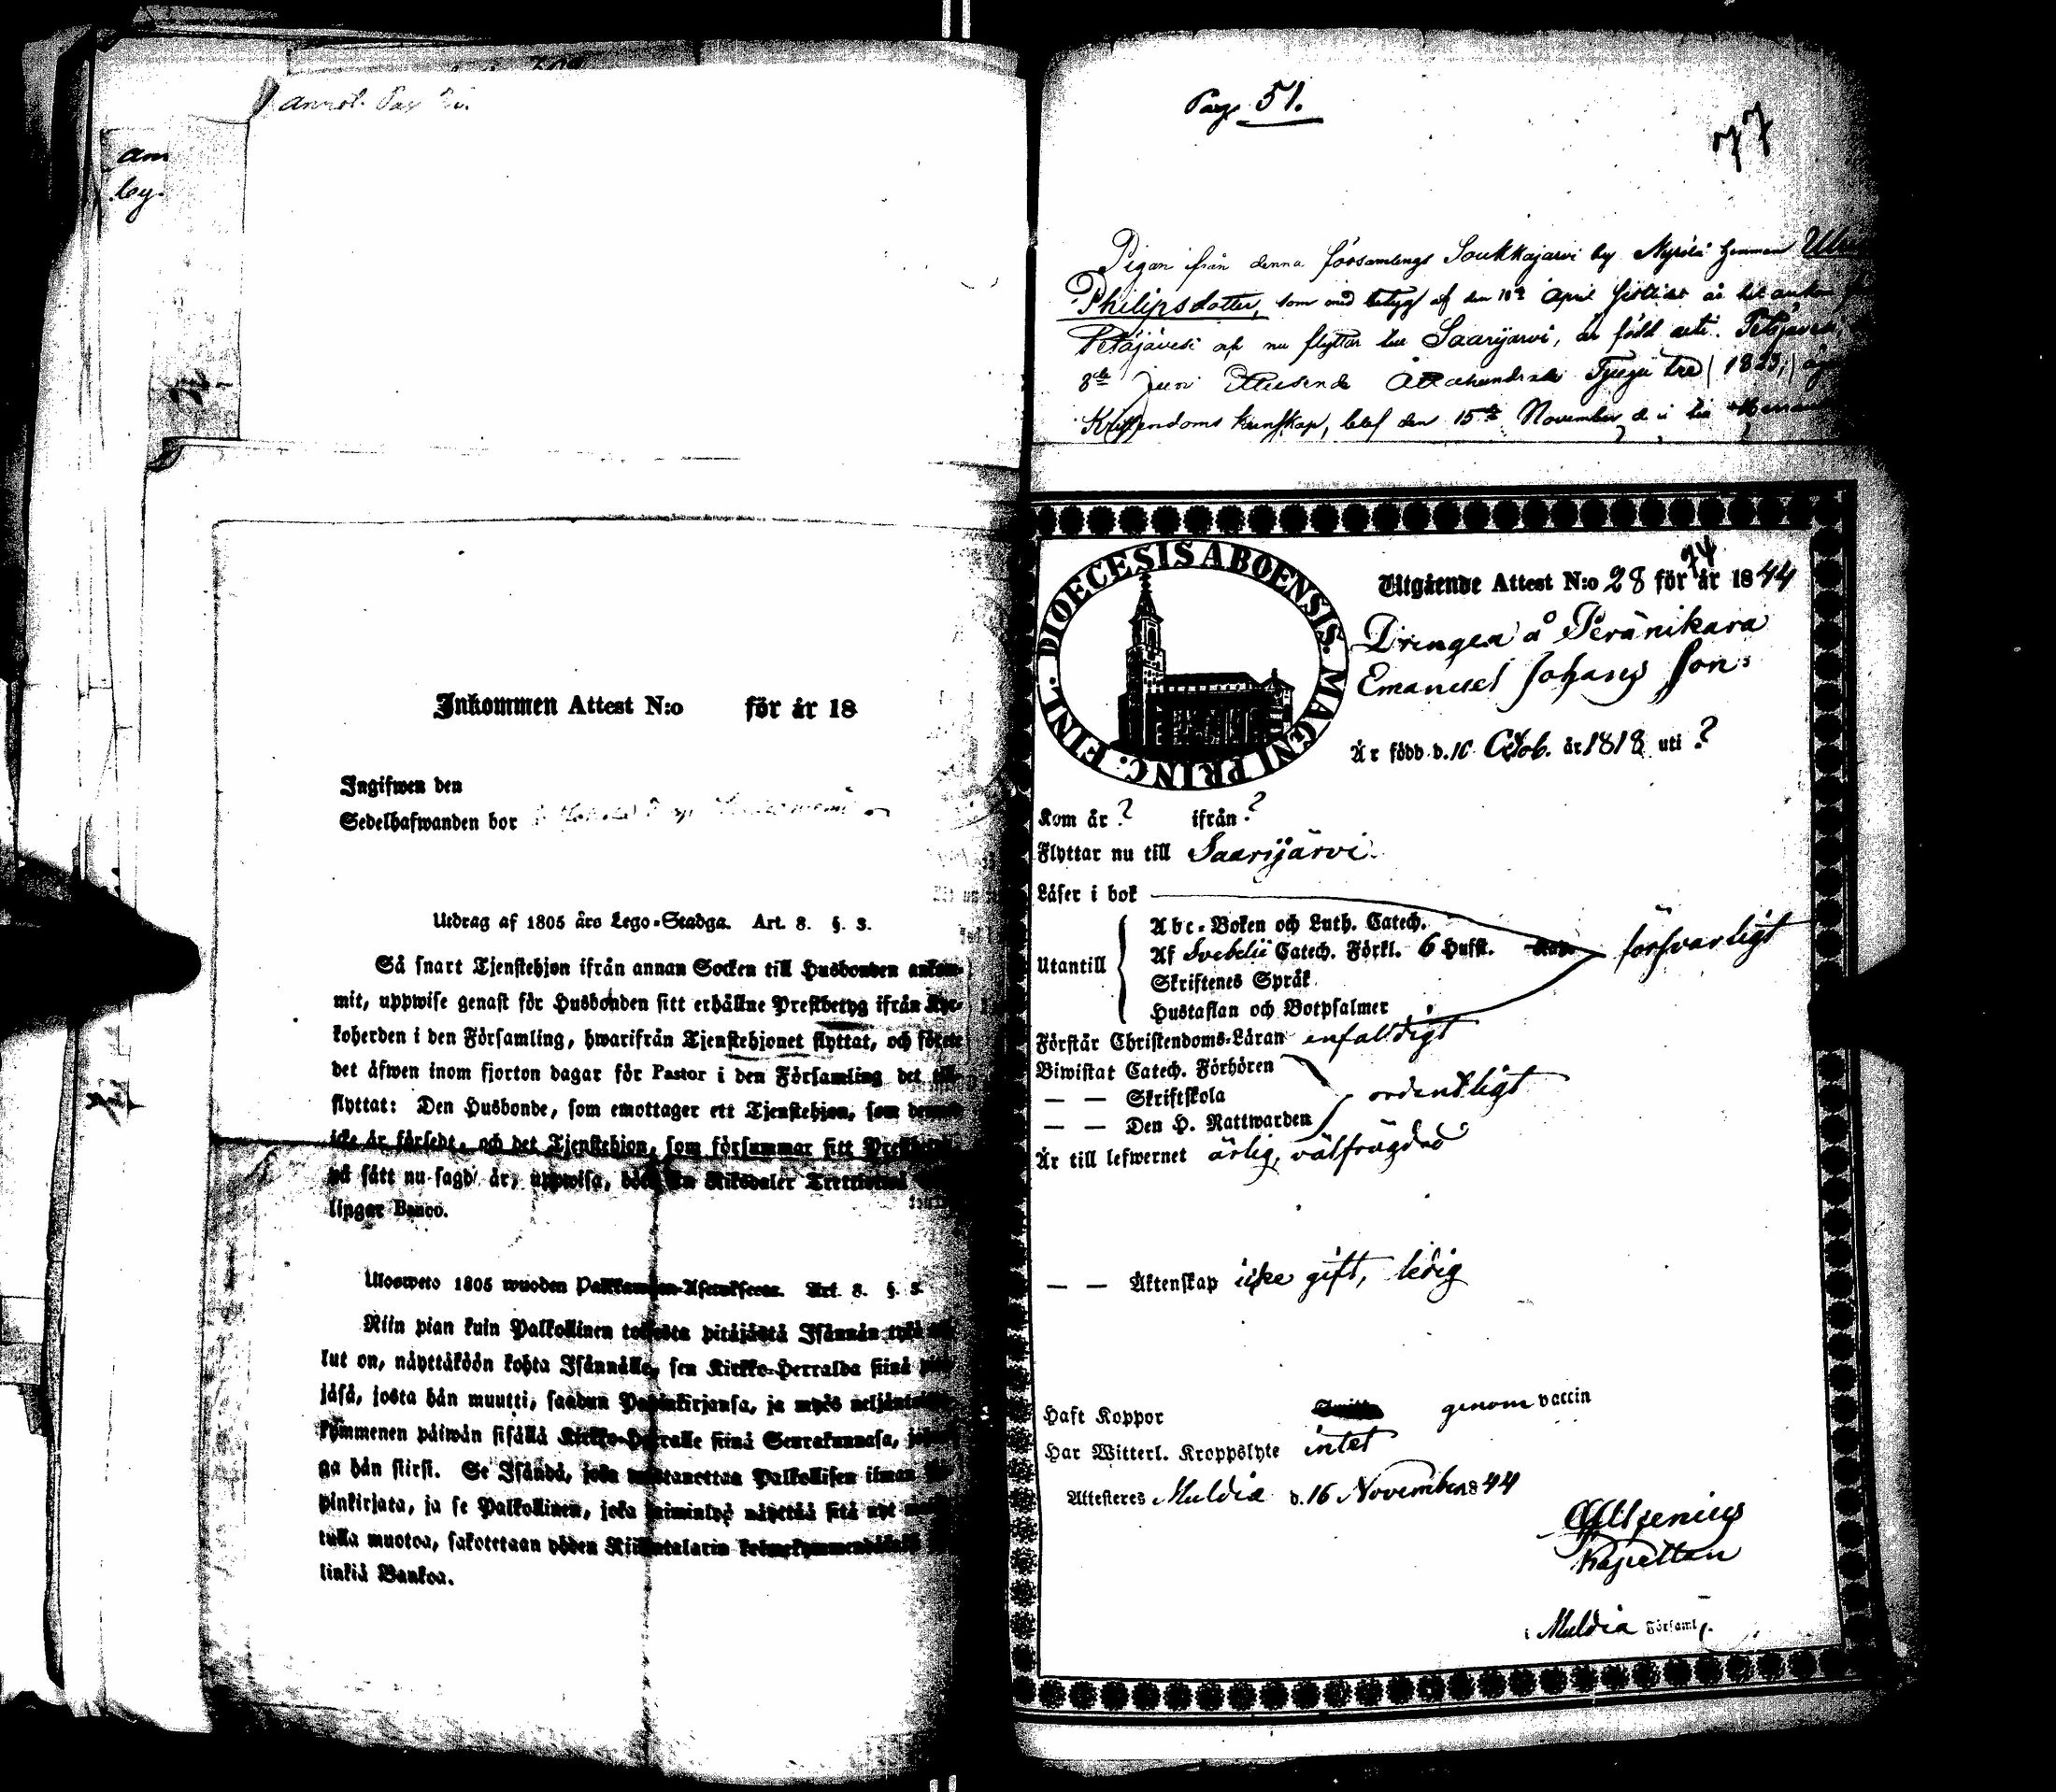 annot. Pag
am
by.
Inkommen Attest N:o för år 18
Ingifwen den
Sedelhafwanden bor
Utdrag af 1805 års Lego-Stadga. Art. 8. §. 3.
Så snart Tjenstehjon ifrån annan Socken till Husbonden ankom-
mit, uppwise genast för Husbonden sitt erhållne Prestbetyg ifrån Kyr-
koherden i den Församling, hwarifrån Tjenstehjonet flyttat, och förete
det äfwen inom fjorton dagar för Pastor i den Församling det till-
flyttat: Den Husbonde, som emottager ett Tjenstehjon, som dermed
icke är försedt, och det Tjenstehjon, som försummar sitt
på sätt nu sagdt är, uppwisa, böte En Riksdaler Trettiotwå
lingar Banco.
Ulosweto 1805 wuoden Palkkawäen-Asetuksesta. Art. 8. §. 3.
Niin pian kuin Palkollinen toisesta pitäjästä Isännän tykö
lut on, näyttäköön kohta Isännälle, sen Kirkko-Herralda siinä
jäsä, josta hän muutti, saadun Papinkirjansa, ja myös neljäntoista-
kymmenen päiwän sisällä Kirkko-Herralle siinä Seurakunnasa,
ga hän siirsi. Se Isändä, joka wastanottaa Palkollisen ilman
pinkirjata, ja se Palkollinen, joka laiminlyö näyttää sitä nyt
tulla muotoa, sakotetaan yhden Riikintalarin
linkiä Bankoa.
Pag 51.
77
Pigan ifrån denna församlings Soukkajärvi by Nyrölä hemman
Philipsdotter, som med betyg af den 10de April sistlidet år hit
Petäjävesi och nu flyttar till Saarijärvi, är född uti Petäjävesi,
8de Juni Ettusende Åttahundrade Tjugu tre (1823,)
Kristendoms kunskap, blef den 15de November
DIOECESIS ABOENSIS. MAGNI PRINC. FINL.
74
Utgående Attest N:o 28 för år 1844
Drengen å Peränikara
Emanuel Johans Son:
Är född d. 10 Octob. år 1818 uti ?
Kom år ? ifrån ?
Flyttar nu till Saarijärvi.
Läser i bok
Abc-Boken och Luth. Catech.
Utantill Af Svebelii Catech. Förkl. 6 Hufst. försvarligt
Skriftenes Språk
Hustaflan och Botpsalmer
Förstår Christendoms-Läran enfaldigt
Biwistat Catech. Förhören
— — Skriftskola ordentligt
— — Den H. Nattwarden
Är till lefwernet ärlig, välfrägdad
— — Äktenskap icke gift, ledig
Haft Koppor genom vaccin
Har Witterl. Kroppslyte intet
Attesteres Muldia d. 16 November 1844
Kapellan
i Muldia Församl.